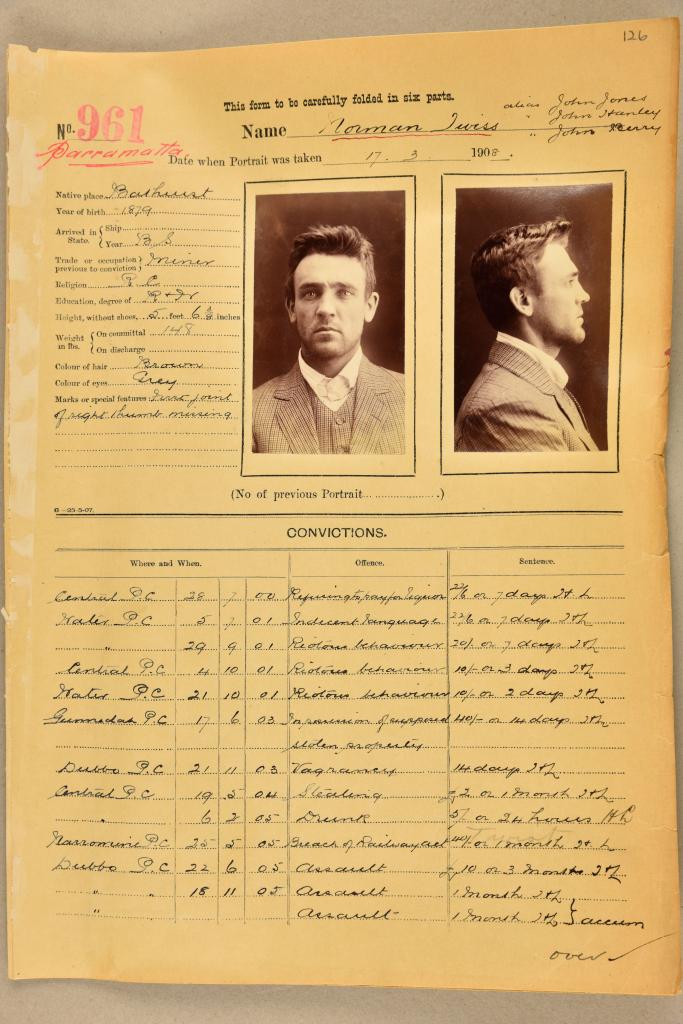 126
This form to be carefully folded in six parts.
No. 961
Name Norman Twiss alias John Jones
" John Hanley
" John Perry
Parramatta
Date when Portrait was taken 17. 3. 1908.
Native place Bathurst
Year of birth 1879
Arrived in State. { Ship
Year B S
Trade or occupation previous to conviction } Miner
Religion R. C.
Education, degree of R & W
Height, without shoes, 5 feet 6 inches
Weight in lbs. { On committal 148
On discharge
Colour of hair Brown
Colour of eyes Grey
Marks or special features First joint
of right thumb missing
(No of previous Portrait )
G—25-5-07.
CONVICTIONS.
Where and When. Offence. Sentence.
Central P.C 28 7 00 Refusing to pay for liquor 22/6 or 7 days
Water P.C 5 7 01 Indecent language 22/6 or 7 days
" 29 9 01 Riotous behaviour 20/- or 7 days
Central P.C 4 10 01 Riotous behaviour 10/- or 3 days
Water P.C 21 10 01 Riotous behaviour 10/- or 2 days
Gunnedah P.C 17 6 03 In possession of supposed 40/- or 14 days
stolen property
Dubbo P.C 21 11 03 Vagrancy 14 days
Central P.C 19 5 04 Stealing £ 2 or 1 Month
" 6 2 05 Drunk 5/ or 24 hours H L
Narromine P.C 25 5 05 Breach of Railway act 40/- or 1 month
Dubbo P.C 22 6 05 Assault £ 10 or 3 Months
" " 18 11 05 Assault 1 Month
" Assault 1 Month } accum
over